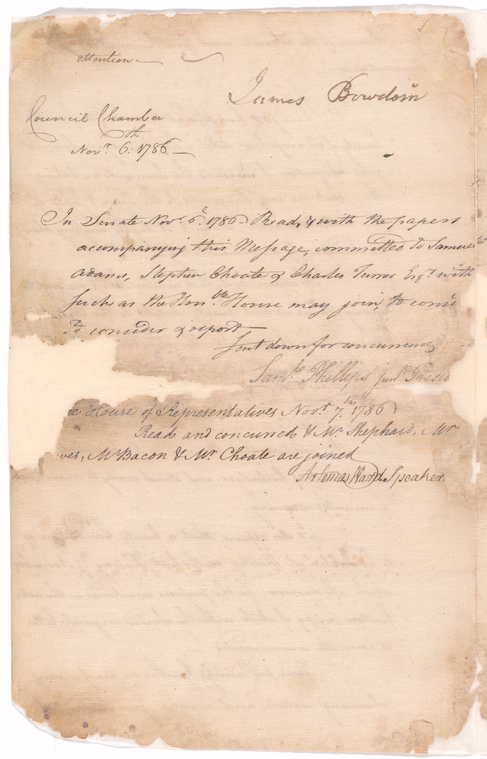 attention —
James Bowdoin
Council Chamber
Novr. 6th. 1786 —
In Senate Novr. 6th. 1786 Read, & with the papers
accompanying this Message, committed to Samuel
Adams, Stephen Choate & Charles Turner Esqrs. with
such as the Honble. House may join, to
consider & report,
sent down for concurrence
Saml. Phillips junr. Presid
House of Representatives Novr. 7th. 1786
Read and concurred & Mr. Shephard, Mr
ves, Mr Bacon & Mr Choate are joined
Artemas Ward Speaker